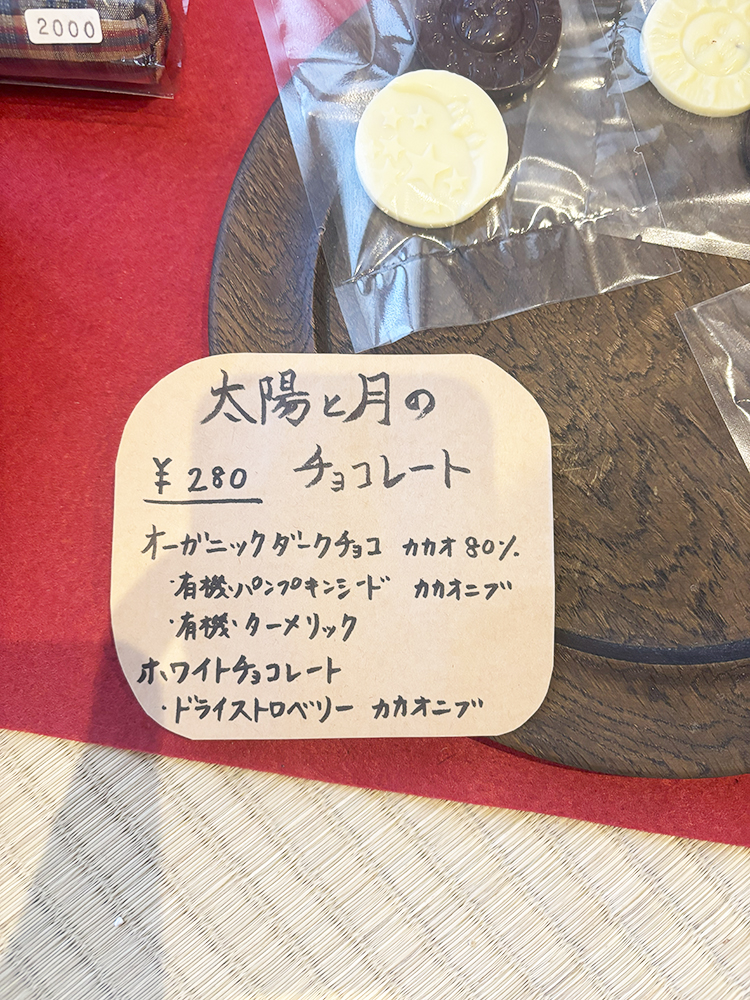 2000
太陽と月の
¥280 チョコレート
オーガニックダークチョコ カカオ80%
・有機・パンプキンシード カカオニブ
・有機・ターメリック
ホワイトチョコレート
・ドライストロベリー カカオニブ